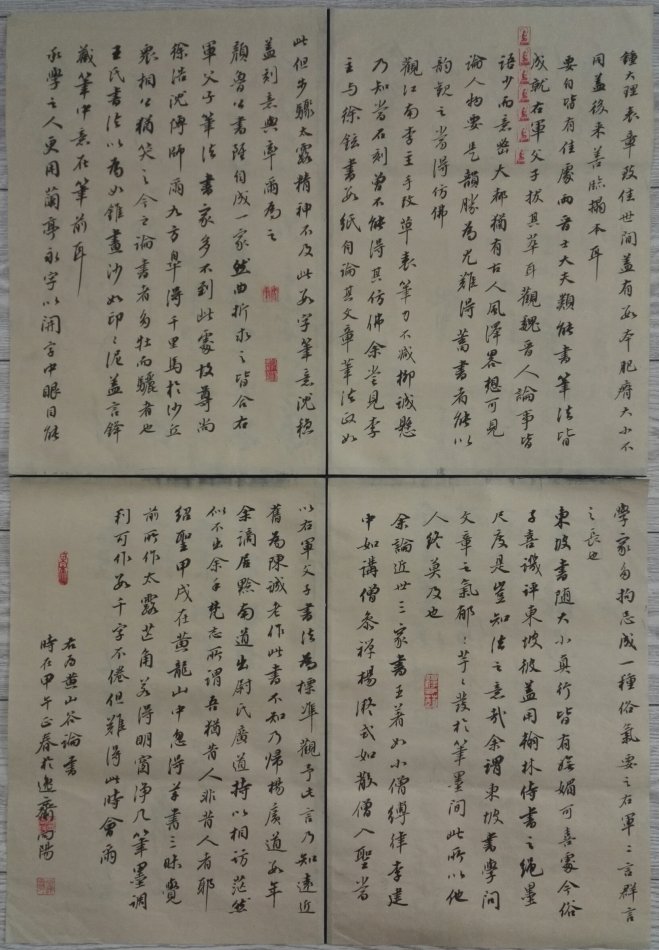 鍾大理表章致佳世間蓋有數本肥瘠大小不
同蓋後来善臨搨本耳
要自皆有佳處兩晉士大夫類能書筆法皆
成就右軍父子拔其萃耳觀魏晉人論事皆
語少而意密大都猶有古人風澤略想可見
論人物要是韻勝為尤難得蓄書者能以
韻觀之當得仿佛
觀江南李主手改草表筆力不減柳誠懸
乃知當石刻曾不能得其仿佛余嘗見李
主与徐鉉書數紙自論其文章筆法政如
此但步驟太露精神不及此數字筆意沈穩
蓋刻意與率爾為之
顏魯公書雖自成一家然曲折求之皆合右
軍父子筆法書家多不到此處故尊尚
徐浩沈傳師爾九方皋得千里馬於沙丘
眾相工猶笑之今之論書者多牡而驪者也
王氏書法以為如錐畫沙如印々泥蓋言鋒
藏筆中意在筆前耳
承學之人更用蘭亭永字以開字中眼目能
學家多拘忌成一種俗氣要之右軍二言群言
之長也
東坡書隨大小真行皆有嫵媚可喜處今俗
子喜譏評東坡彼蓋用翰林侍書之繩墨
尺度是豈知法之意哉余謂東坡書學問
文章之氣郁々芊々發於筆墨間此所以他
人終莫及也
余論近世三家書王著如小僧縛律李建
中如講僧參禪楊凝式如散僧入聖當
以右軍父子書法為標準觀予此言乃知遠近
舊為陳誠老作此書不知乃歸楊廣道數年
余謫居黔南道出尉氏廣道持以相訪茫然
似不出余手梵志所謂吾猶昔人非昔人者耶
紹聖甲戌在黄龍山中忽得草書三昧覺
前所作太露芒角若得明窗淨几筆墨調
利可作數千字不倦但難得此時會爾
右為黄山谷論書
時在甲午正春於逸齋向陽